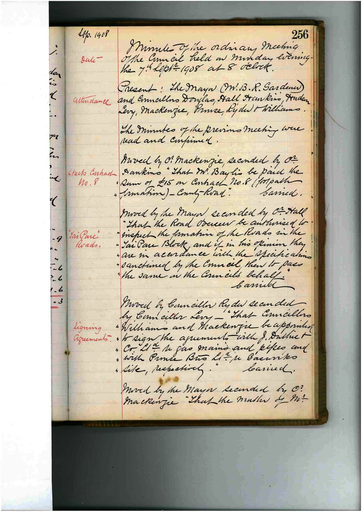 Sep. 1908
256
Minutes of the ordinary Meeting
of the Council held on Monday evening
Date
the 7th Sept 1908 at 8 o'clock.
Present: The Mayor (Mr B. R. Gardener)
Attendance
and Councillors Douglas, Hall, Hawkins,
Levy, Mackenzie, Prince, Ryder & Williams.
The Minutes of the previous Meeting were
read and confirmed.
Moved by Cr Mackenzie, seconded by Cr
No. 8
Hawkins "That Mr Bayly be paid the
sum of £15 on Contract No. 8 (footpath
formation) - County Road.
Carried.
Moved by the Mayor seconded by Cr Hall
"That the Road Overseer be authorised to
"Tai Pare"
inspect the formation of the Roads in the
Roads.
Tai Pare Block, and if in his opinion they
are in accordance with the specifications
sanctioned by the Council, then to pass
the same on the Council's behalf."
Carried
Moved by Councillor Ryder seconded
by Councillor Levy - "That Councillors
Signing
Williams and Mackenzie be appointed
Agreements
to sign the agreements with J.
Co Ltd re gas mains and pipes and
with Bros Ltd, re
site, respectively."
Carried.
Moved by the Mayor seconded by Cr
Mackenzie "That the matter of Mr